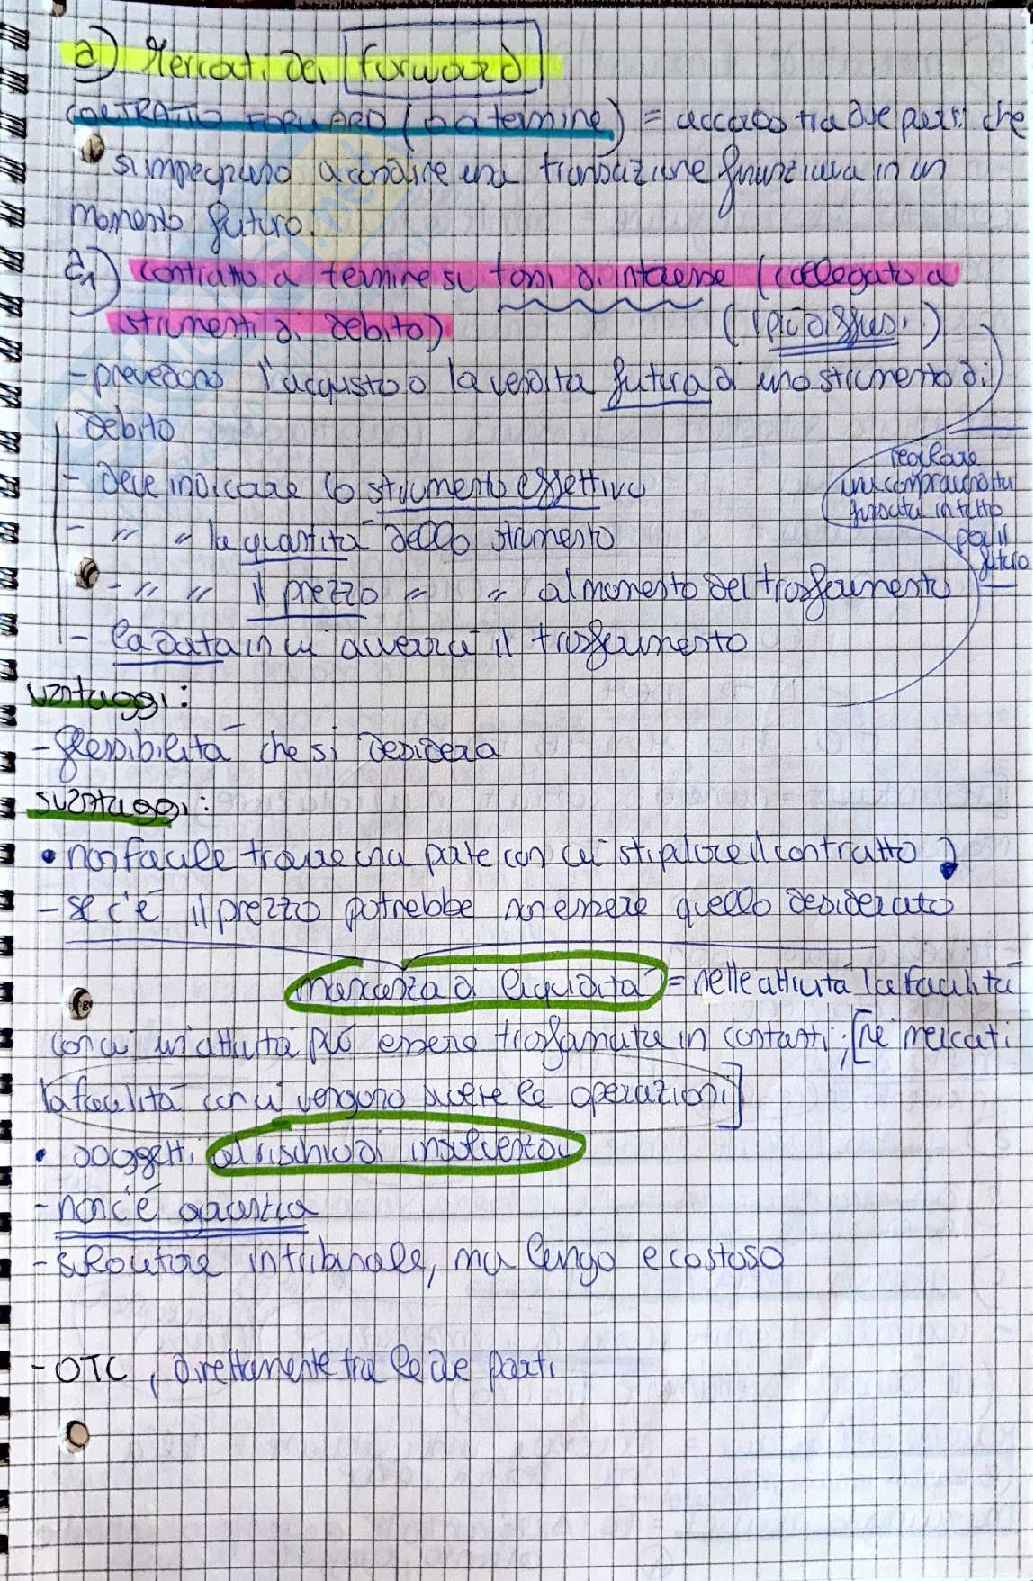 a) Mercati dei forward
CONTRATTO FORWARD (o a termine) = accordo tra due parti che
si impegnano a condurre una transazione finanziaria in un
momento futuro.
a1) contratto a termine su tassi di interesse (collegato a
strumenti di debito) (i più diffusi)
- prevedono l'acquisto o la vendita futura di uno strumento di
debito
- deve indicare lo strumento effettivo
- " " la quantità dello strumento
- " " il prezzo " " al momento del trasferimento
- la data in cui avverrà il trasferimento
realizzare
una compravendita
fissata in tutto
per il
futuro
vantaggi:
- flessibilità che si desidera
svantaggi:
• non facile trovare una parte con cui stipulare il contratto
- se c'è il prezzo potrebbe non essere quello desiderato
mancanza di liquidità = nelle attività la facilità
con cui un'attività può essere trasformata in contanti; [nei mercati
la facilità con cui vengono svolte le operazioni]
• soggetti al rischio di insolvenza
- non c'è garanzia
- soluzione in tribunale, ma lungo e costoso
- OTC, direttamente tra le due parti